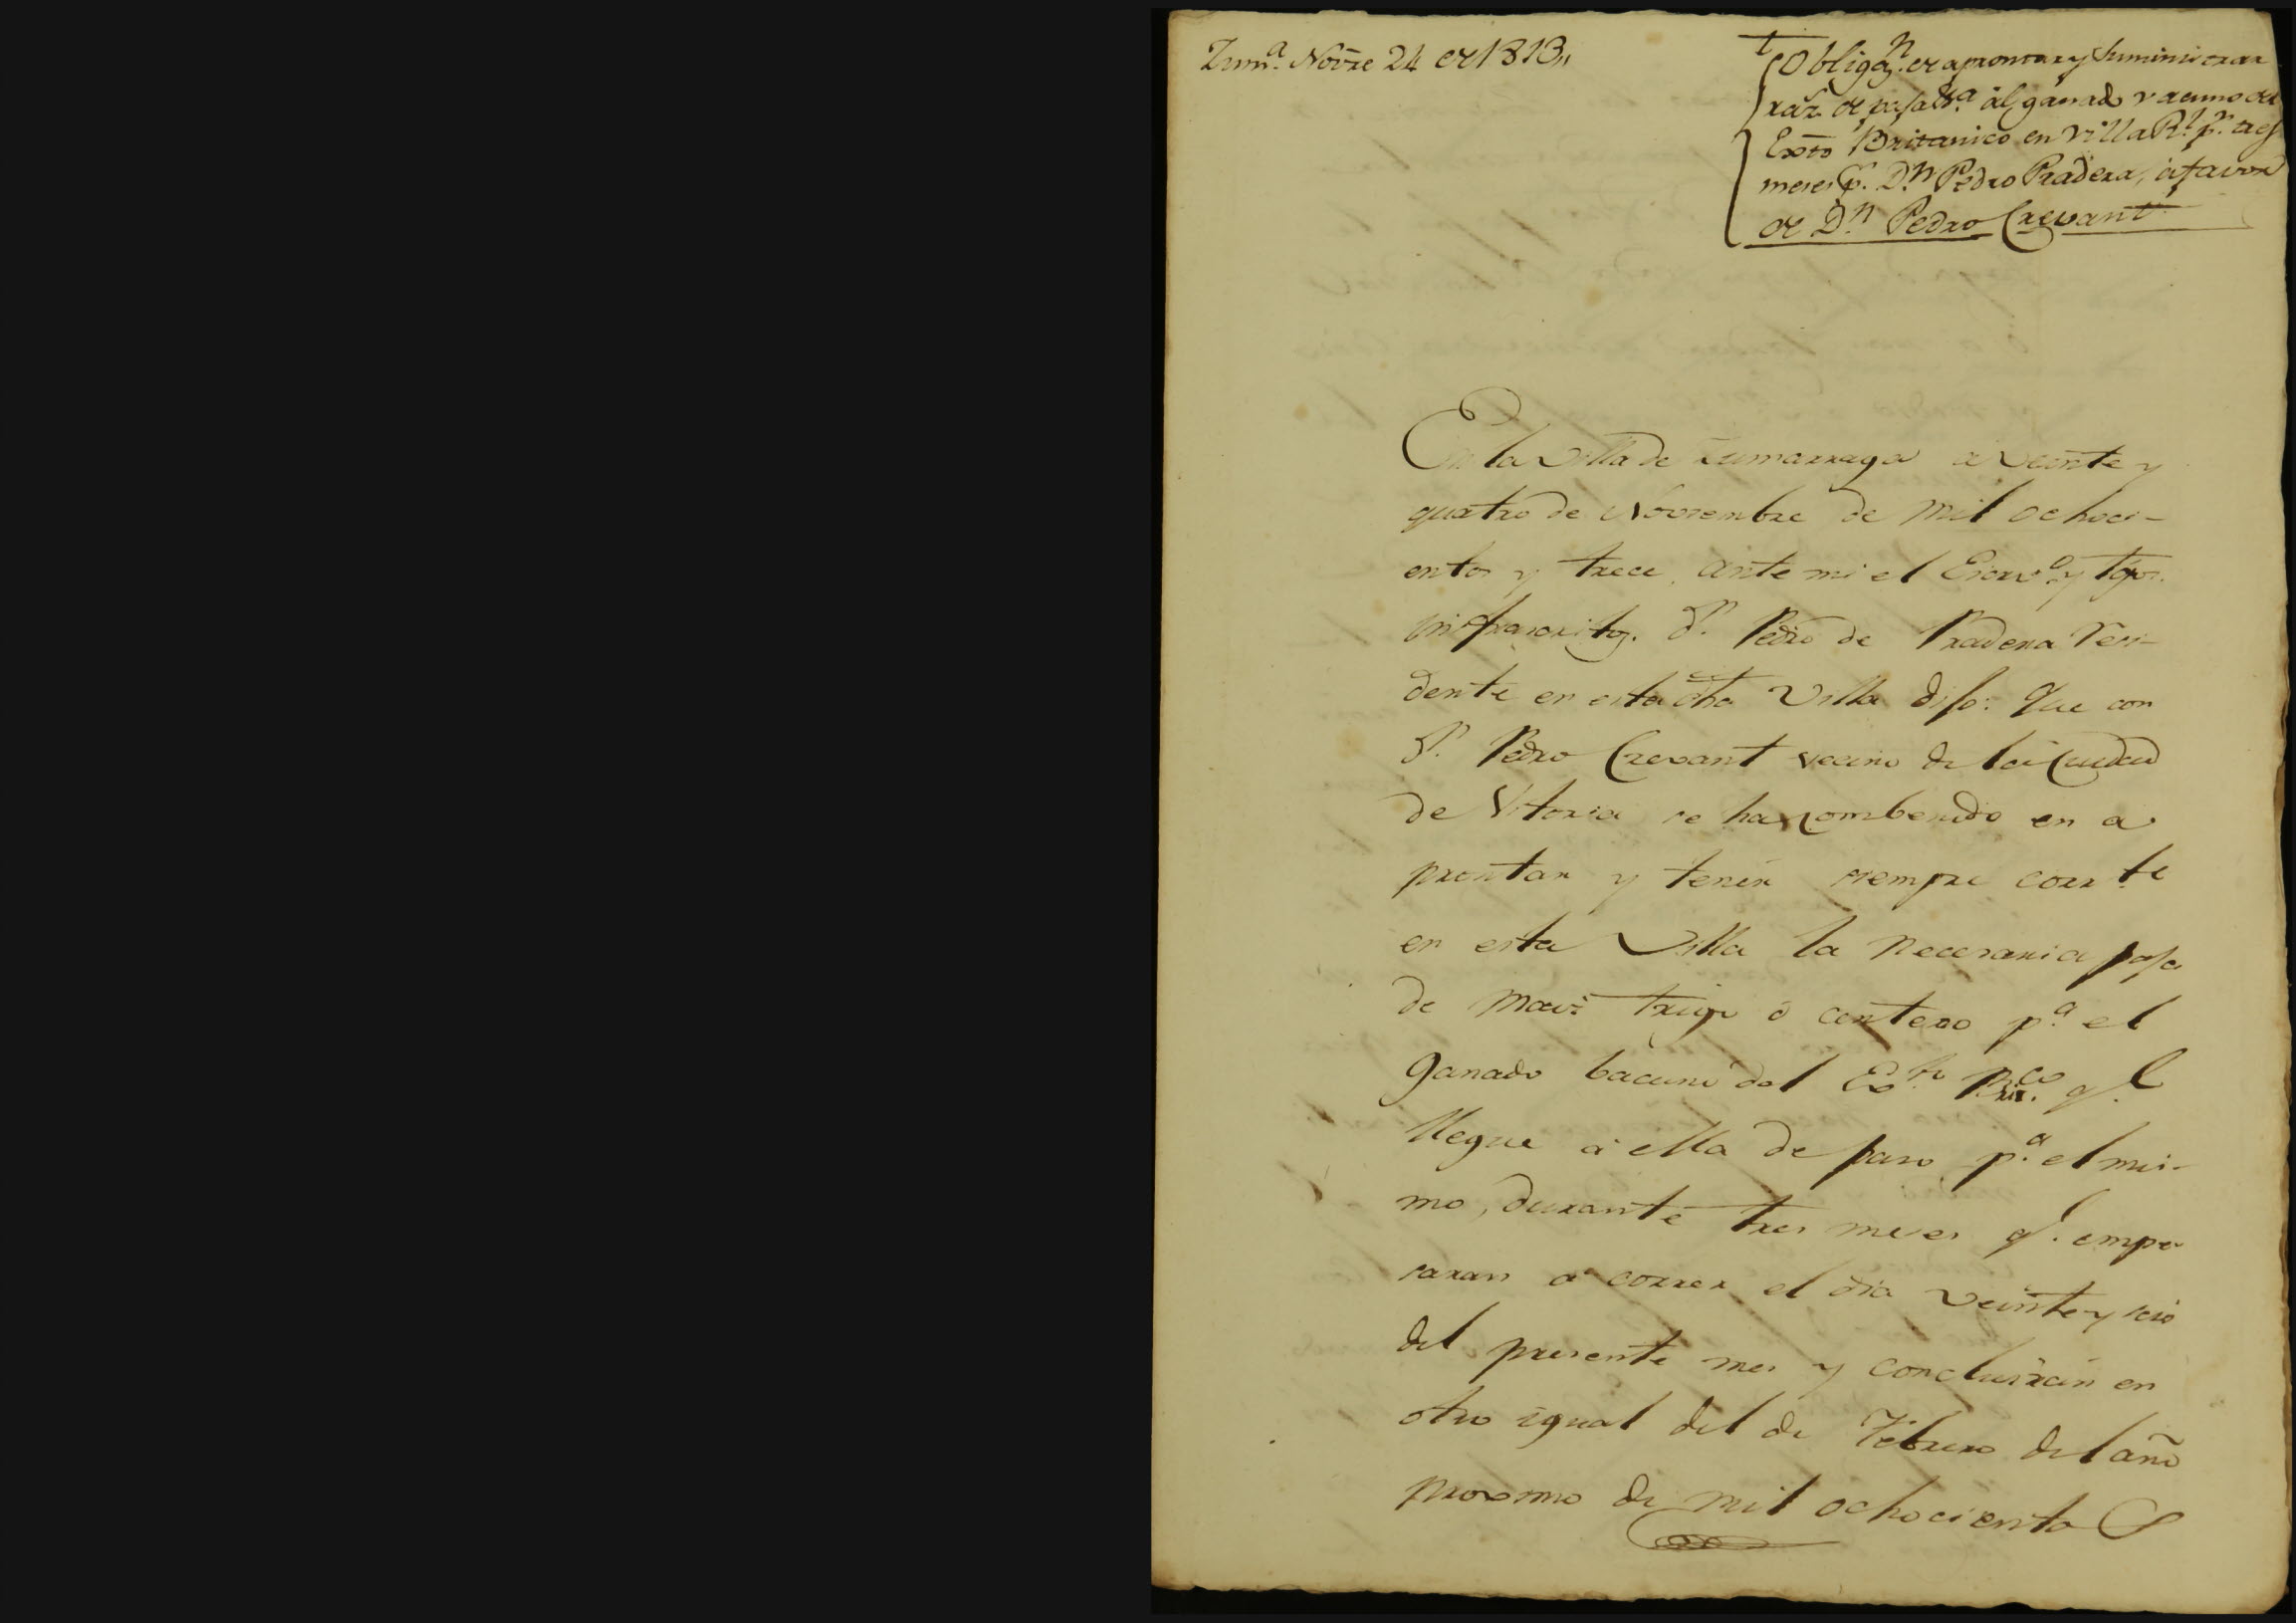 Zumª. Novre 24 de 1813,,
t Obligaz.n de aprontar y suministrar
raz.s de paja &.a al ganado vacuno del
Exto Britanico en Villa R.l p.r tres
meses p.r D.n Pedro Pradera, á favor
de D.n Pedro Crevant
En la Villa de Zumarraga a veinte y
quatro de Noviembre de mil ochoci-
entos y trece, ante mi el Escrv.o y tgos.
infrascritos. D.n Pedro de Pradera resi-
dente en esta dha Villa dijo: Que con
D.n Pedro Crevant vecino de la Ciudad
de Vitoria se ha combenido en a
prontar y tener siempre corr.te
en esta Villa la necesaria paja
de maiz trigo ó centeno p.a el
ganado bacuno del Ex.to Brit.co q.e
llegue á ella de paso p.a el mis-
mo, durante tres meses q.e empe
saran á correr el dia veinte y seis
del presente mes y concluirán en
otro igual del de Febrero del año
proximo de mil ochociento